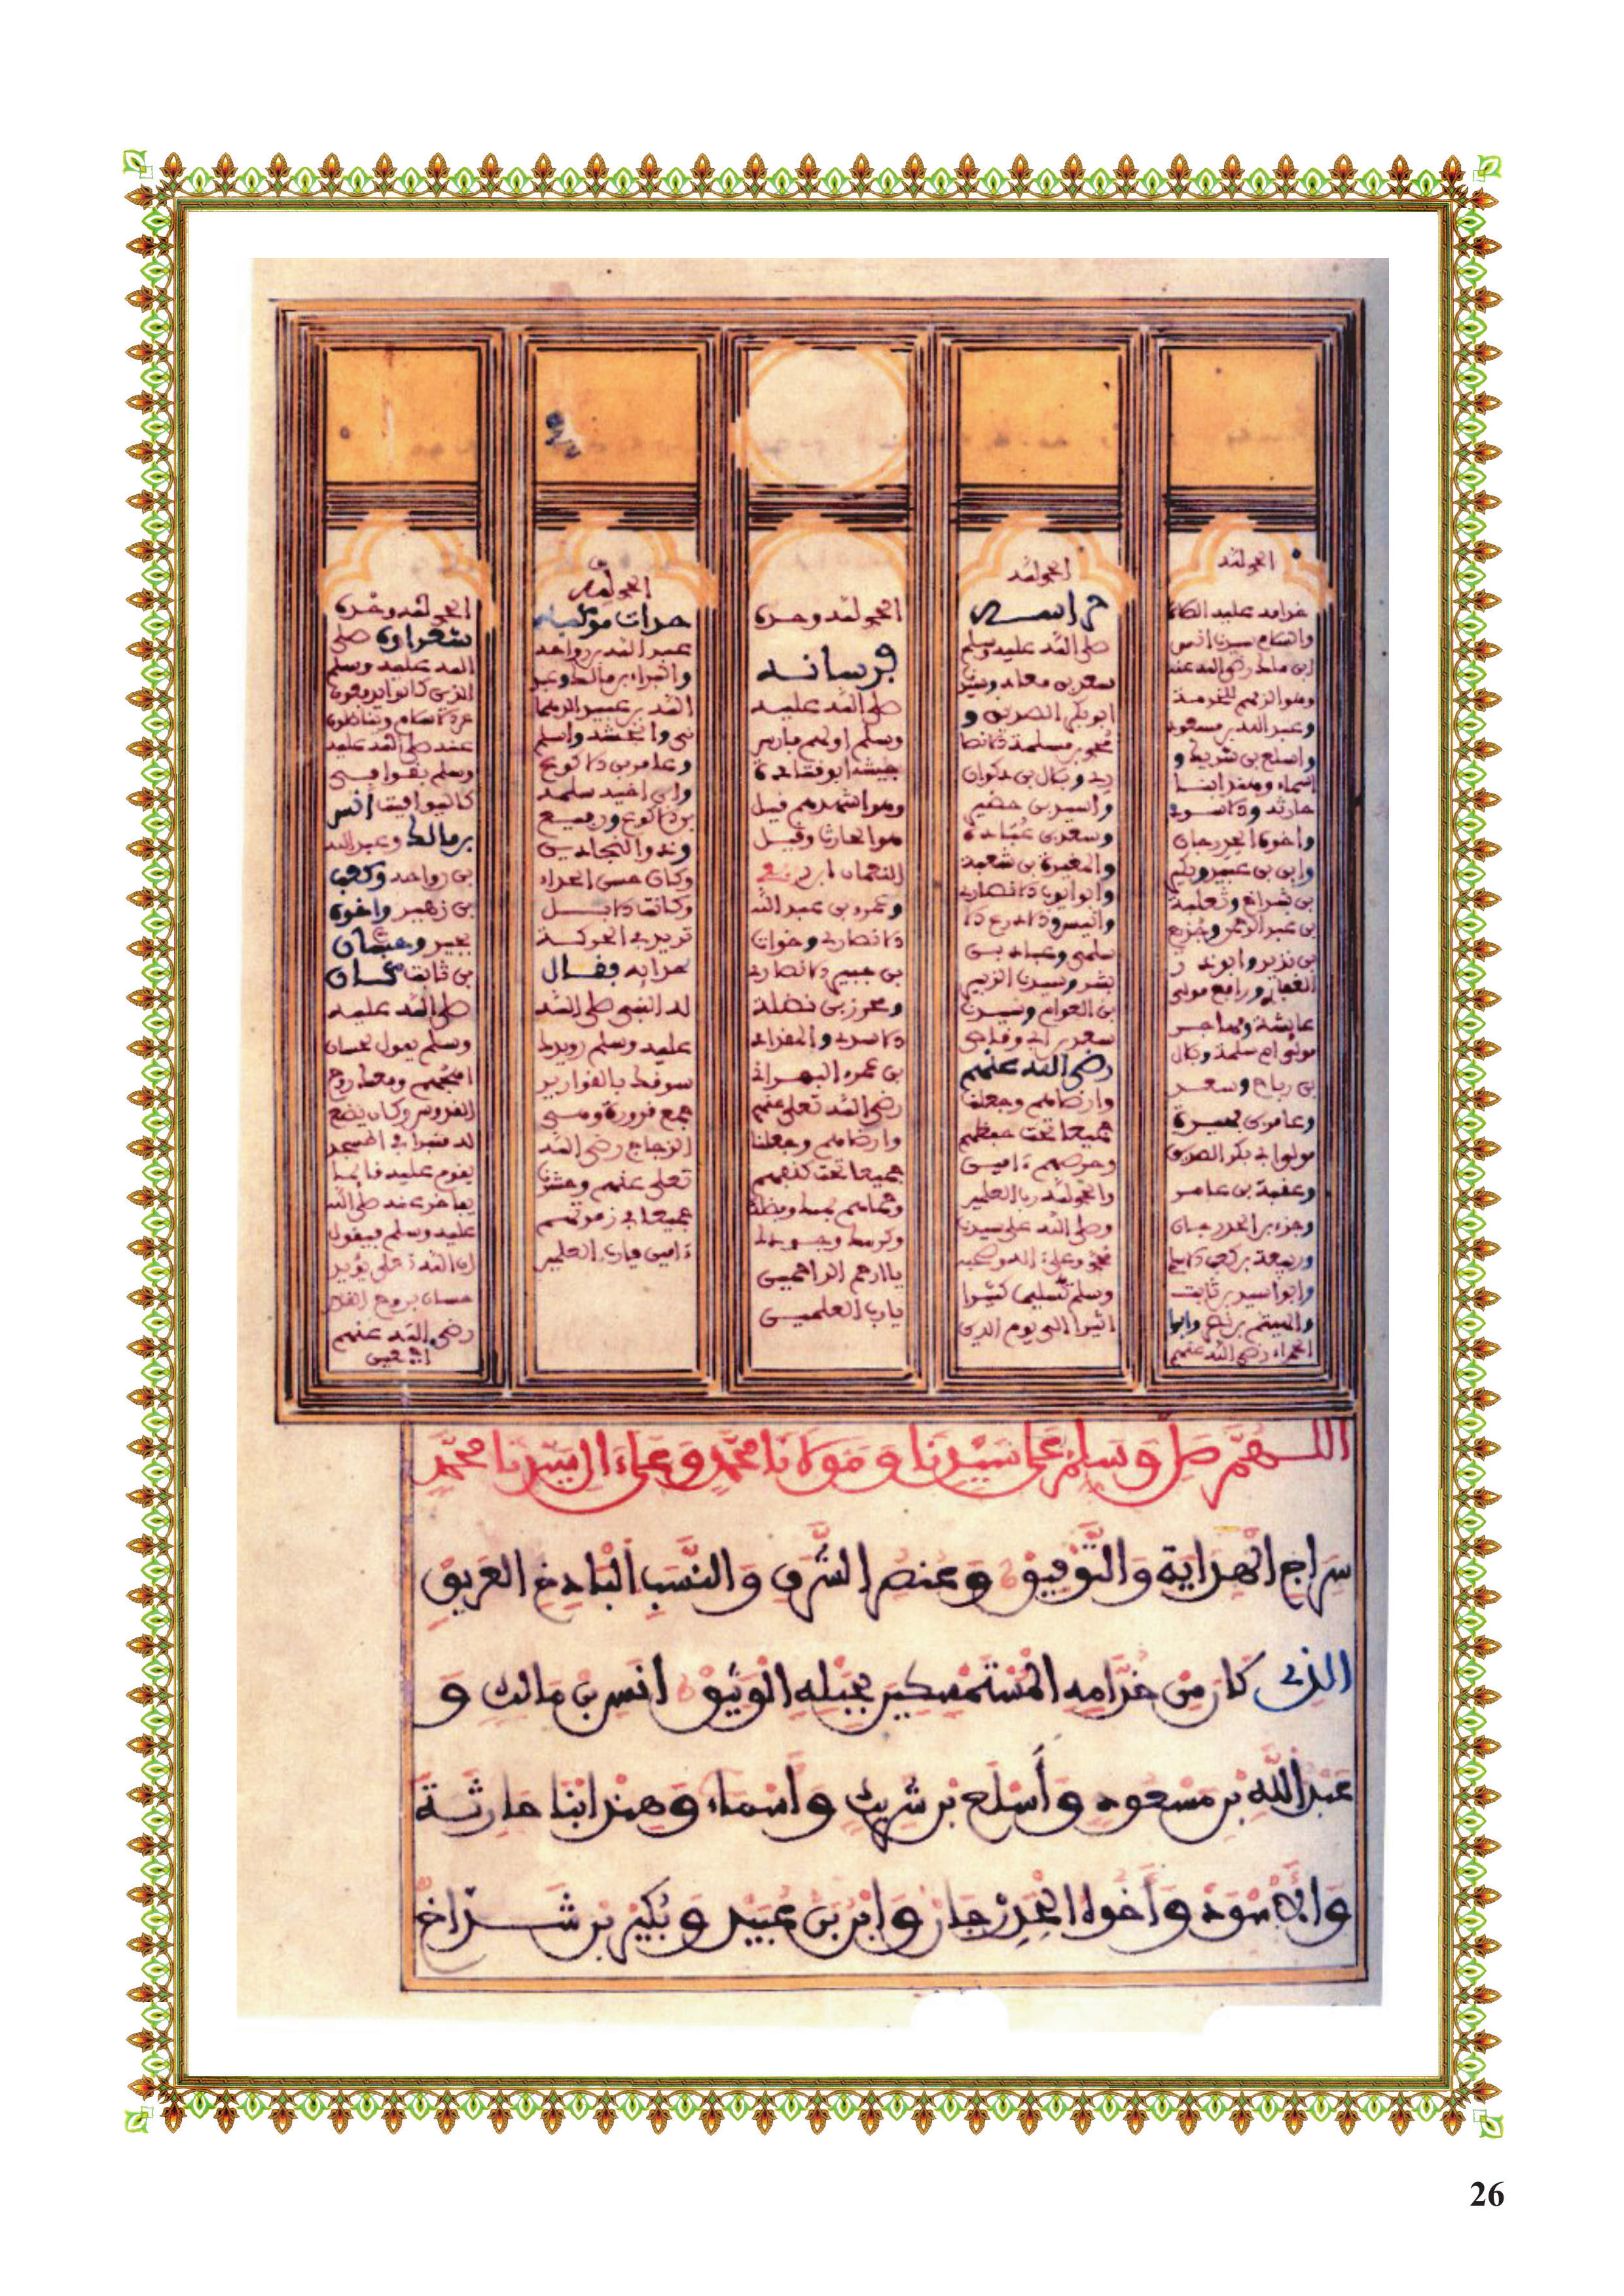 الحمد لله
خدامه عليه الصلاة
والسلام سيدنا انس
ابن مالك رضي الله عنه
وعبد الله بن مسعود
واسلع بن شريك و
اسماء وهند ابنا
حارثة والاسود
واخوه الحدرجان
بن شداخ وثعلبة
الغفاري ورافع مولى
عايشة ومهاجر
مولى ام سلمة وبلال
بن رباح وسعد
وعامر بن فهيرة
مولى ابي بكر الصديق
وعقبة بن عامر
رضي الله عنهم
الحمد لله
حراسه
صلى الله عليه وسلم
سعد بن معاذ وسيدنا
ابو بكر الصديق و
محمد بن مسلمة الانصا
ري وبلال
واسيد بن حضير
وسعد بن عبادة
والمغيرة بن شعبة
وابو ايوب الانصاري
بشر وسيدنا الزبير
بن العوام وسيدنا
سعد بن ابي وقاص
رضي الله عنهم
وارضاهم وجعلنا
جميعا تحت حفظهم
وحرصهم ءامين
والحمد لله رب العلمين
وصلى الله على سيدنا
محمد وعلى اله وصحبه
وسلم تسليما كثيرا
اثيرا الى يوم الدين
الحمد لله وحده
فرسانه
صلى الله عليه
وسلم اولهم فارس
جيشه ابو قتادة
وهو اشهرهم قيل
هو الحارث وقيل
النعمان ابن ربعي
وعمرو بن عبد الله
ومحرز بن نضلة
الاسدي والمقداد
بن عمرو البهراني
رضي الله تعلى عنهم
وارضاهم وجعلنا
جميعا تحت كنفهم
ياارحم الراحمين
يارب العلمين
الحمد لله
حداة موكبه
عبد الله بن رواحة
والبراء بن مالك وعبد
وانجشة واسلم
وعامر بن الاكوع
وكان حسن الحداء
وكانت الابل
تزيد في الحركة
بحدايه فقال
له النبي صلى الله
عليه وسلم رويدك
سوقك بالقوارير
جمع قارورة وهي
الزجاج رضي الله
تعلى عنهم وحشرنا
جميعا في زمرتهم
ءامين يارب العلمين
الحمد لله وحده
شعراؤه صلى
الله عليه وسلم
الذين كانوا يدفعون
عن الاسلام ويناضلون
عنه صلى الله عليه
وسلم بقوافي
كاليواقيت
بن مالك وعبد الله
بن رواحة وكعب
بن زهير واخوه
بجير
بن ثابت كان
صلى الله عليه
وسلم يقول لحسان
اهجهم ومعك روح
القدس وكان يضع
له منبرا في المسجد
يقوم عليه قايما
يفاخر عنه صلى الله
عليه وسلم فيقول
ان الله تعلى يؤيد
حسان بروح القدس
رضي الله عنهم
اجمعين
اللهم صل وسلم على سيدنا ومولانا محمد وعلى ءال سيدنا محمد
سراج الهداية والتوفيق وعنصر الشرف والنسب الباذخ العريق
الذي كان من خدامه المستمسكين بحبله الوثيق انس بن مالك و
عبد الله بن مسعود وأسلع بن شريك وأسماء وهند ابنا حارثة
والاسود وأخوه الحدرجان وايمن بن عبيد وبكير بن شداخ
26